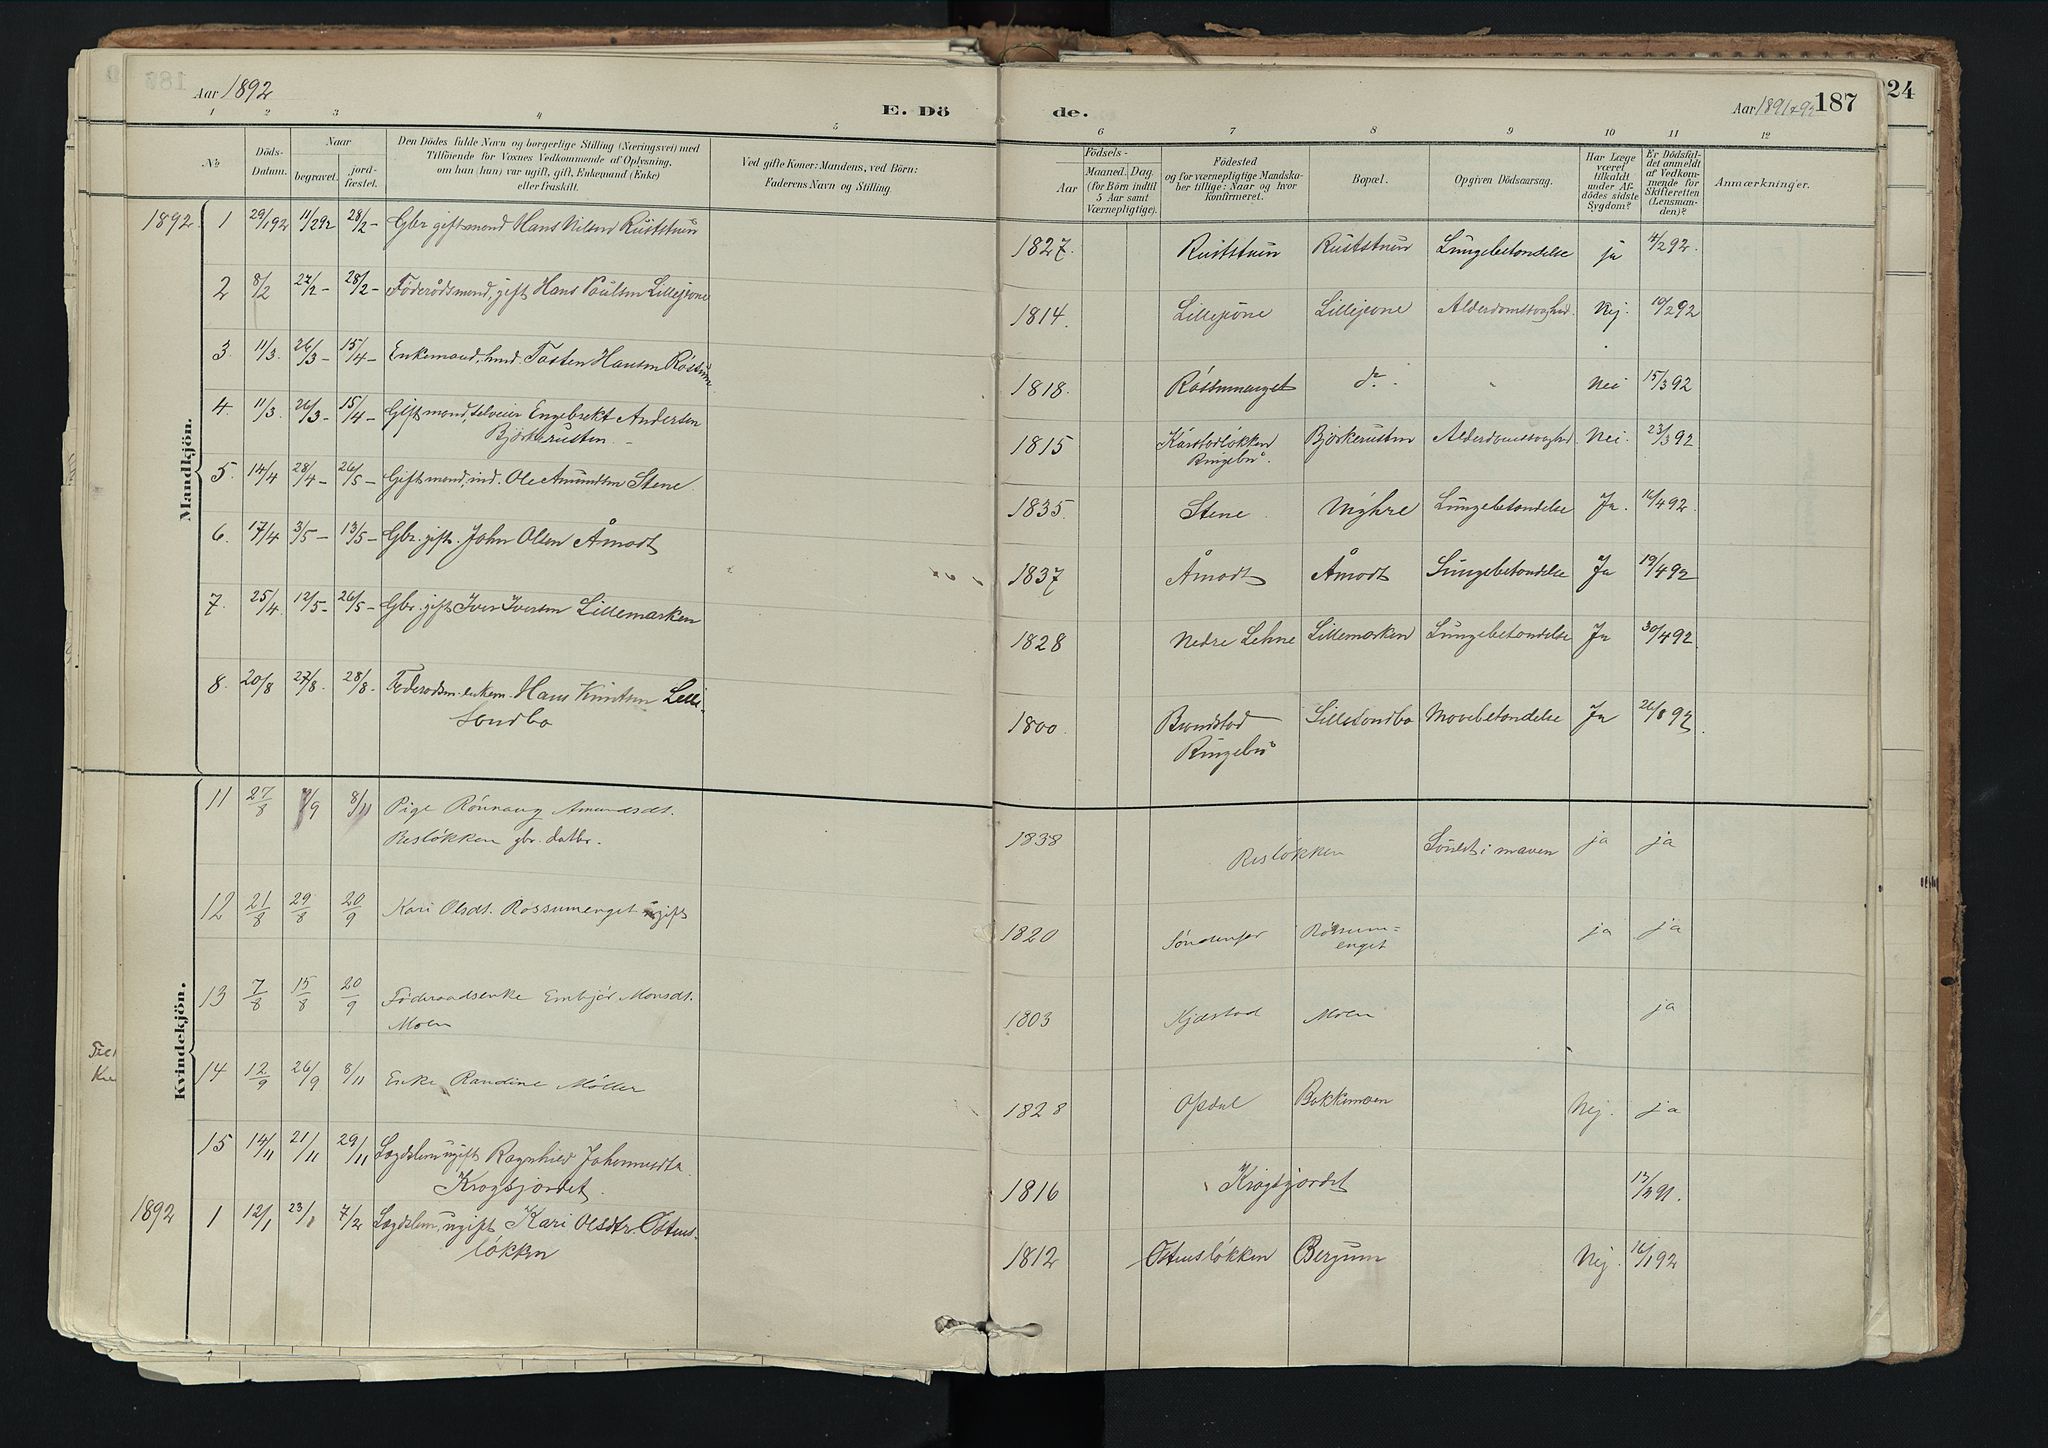 Aar 1892
E. Dö
de.
Aar 1891 & 92
187
24
1 2 3 4 5 6 7 8 9 10 11 12
No
Döds-
Datum.
Naar
begravet.
jord-
fæstet.
Den Dödes fulde Navn og borgerlige Stilling (Næringsvei) med
Tilföiende for Voxnes Vedkommende af Oplysning,
om han (hun) var ugift, gift, Enkemand (Enke)
eller fraskilt.
Ved gifte Koner: Mandens, ved Börn:
Faderens Navn og Stilling.
Födsels-
Aar
Maaned. Dag.
(for Börn indtil
5 Aar samt
Værnepligtige).
Födested
og for værnepligtige Mandska-
ber tillige: Naar og hvor
konfirmeret.
Bopæl.
Opgiven Dödsaarsag.
Har Læge
været
tilkaldt
under Af-
dödes sidste
Sygdom?
Er Dödsfal-
det anmeldt
af Vedkom-
mende for
Skifteretten
(Lensman-
den)?
Anmærkninger.
Mandkjön.
1892. 1 29/1 92 11/2 92 28/2 - Gbr gift mand Hans Nilsen Ruststuen 1827. Ruststuen Ruststuen Lungebetændelse ja 4/2 92.
2 8/2 27/2 - 28/2 - Föderådsmand, gift Hans Paulsen Lillejone 1814. Lillejone Lillejone Alderdomssvaghed. Nej. 10/2 92
3. 11/3. 26/3 - 15/4 - Enkemand, ind. Tosten Hansen Røssum 1818. Røssumenget do. Nei 15/3 92
4. 11/3. 26/3 - 15/4 - Gift mand, selveier Engebrekt Andersen
Bjørkerusten - 1815 Kårstadløkken
Ringebu. Bjørkerusten Alderdomssvaghed Nei. 23/3 92
5. 14/4 28/4 - 26/5 - Gift mand, ind. Ole Amundsen Stene. 1835. Stene Lungebetændelse Ja. 16/4 92.
6. 17/4 3/5 - 13/5 - Gbr. gift. John Olsen Åmodt 1837 Åmodt Åmodt Lungebetændelse Ja 19/4 92
7. 25/4. 12/5 - 26/5 - Gbr. gift Iver Iversen Lillemarken 1828 Nedre Lehne Lillemarken Lungebetændelse Ja 30/4 92
8. 20/8 27/8. 28/8. Föderådsm. enkem. Hans Knutsen Lille-
sondbo 1800. Brandstad
Ringebu Lillesondbo Mavebetændelse Ja 26/8 92.
Kvindekjön.
11 27/8 /9 8/11 Pige Rönnaug Amundsdt.
Resløkken gbr. datter. 1838 Resløkken i maven ja ja
12 21/8 29/8 20/9 Kari Olsdt. Røssumenget ugift 1820 Røssum=
enget ja ja
13 7/8 15/8 20/9 Föderaadsenke Embjør Monsdt.
Moen 1803 Kjæstad Moen ja
14 12/9 26/9 8/11 Enke Randine Møller 1828 Opdal Bakkemoen Nej. ja
15 14/11 21/11 29/11 Lægdslem ugift Ragnhild Johannesdtr.
Krogsjordet. 1816 Krogsjordet 13/ 91.
1892 1 12/1 23/1 7/2 Lægdslem, ugift Kari Olsdtr. Østens-
løkken 1812 Østensløkken Bergum Nej. 16/1 92